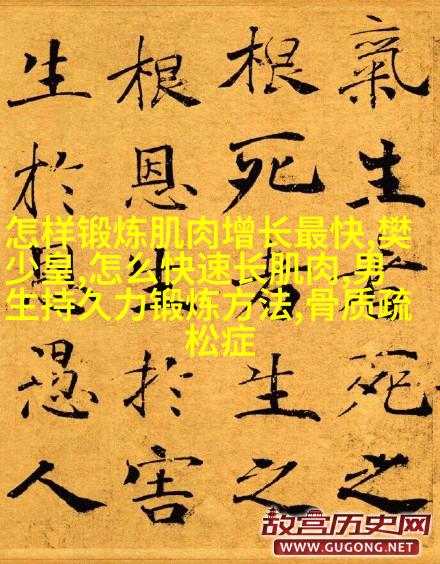 氣生者死之
根死者生之
根恩生於害
生於恩愚人
怎样锻炼肌肉增长最快,樊
少皇,怎么快速长肌肉,男
生持久力锻炼方法,骨质疏
松症
故宫历史网
WWW.GUGONG.NET